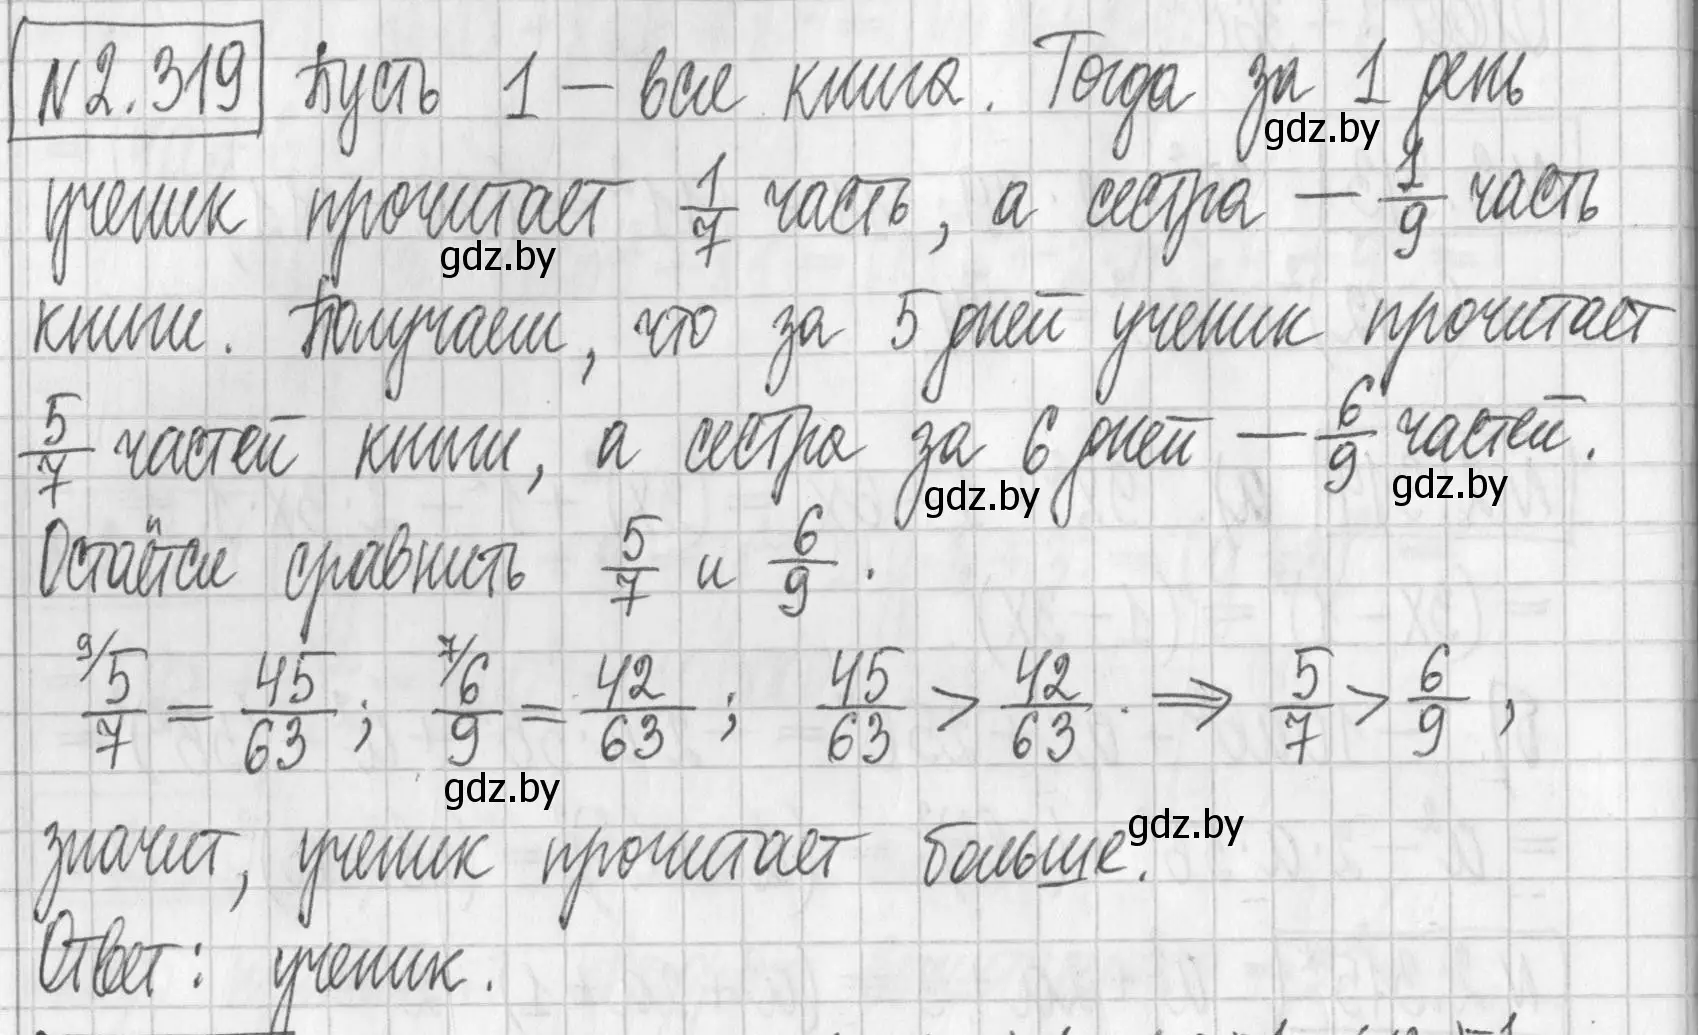 N2.319 Пусть 1 — вся книга. Тогда за 1 день
gdz.by
ученик прочитает 1/7 часть, а сестра — 1/9 часть
gdz.by
книги. Получаем, что за 5 дней ученик прочитает
5/7 частей книги, а сестра за 6 дней — 6/9 частей.
gdz.by gdz.by
Остаётся сравнить 5/7 и 6/9.
9/ 5/7 = 45/63; 7/ 6/9 = 42/63; 45/63 > 42/63. ⇒ 5/7 > 6/9,
gdz.by
gdz.by
значит, ученик прочитает больше.
Ответ: ученик.